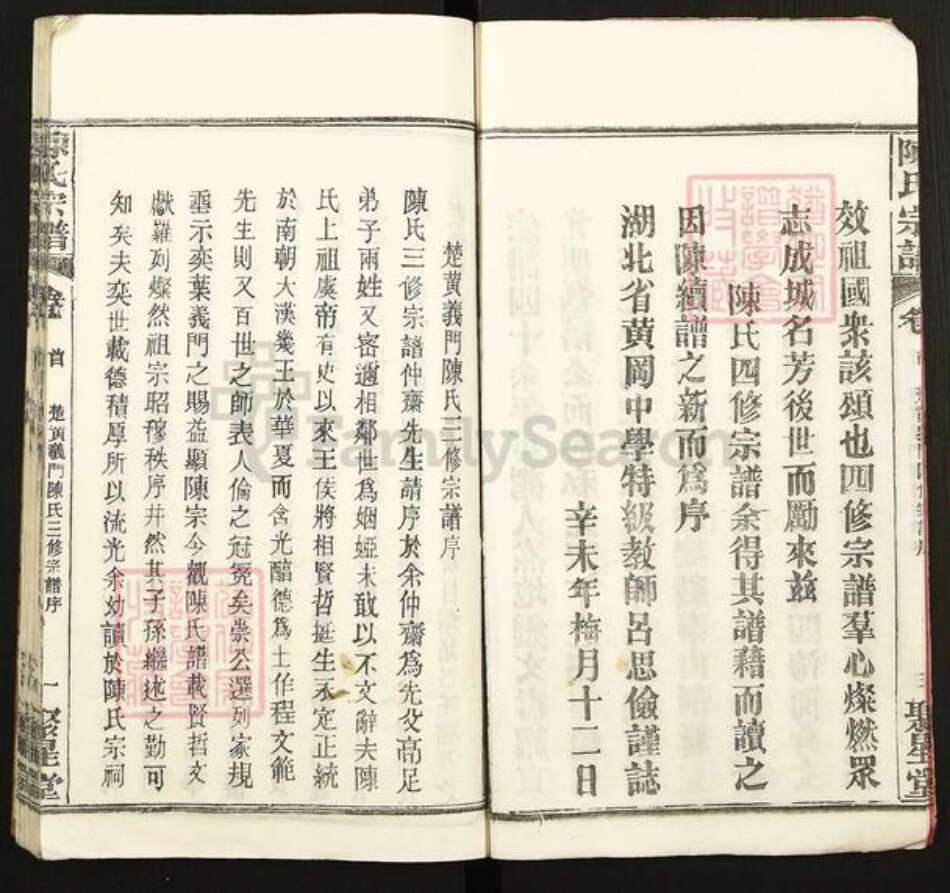 陳氏宗譜
效祖國衆該頌也四修宗譜羣心燦燃眾
志成城名芳後世而勵來兹
陳氏四修宗譜余得其譜藉而讀之
因陳續譜之新而爲序
湖北省黄岡中學特級教師呂思儉謹誌
辛未年梅月十二日
聚星堂
楚黄義門陳氏三修宗譜序
陳氏三修宗譜仲齋先生請序於余仲齋爲先父高足
弟子兩姓又密邇相鄰世爲姻婭未敢以不文辭夫陳
氏上祖虞帝有史以來王侯將相賢哲挺生永定正統
於南朝大漢幾王於華夏而含光醕德爲士作程文範
先生則又百世之師表人倫之冠冕矣崇公選列家規
垂示奕葉義門之賜益顯陳宗今觀陳氏譜載賢哲文
獻羅列燦然祖宗昭穆秩序井然其子孫繼述之勤可
知矣夫奕世載德積厚所以流光余幼讀於陳氏宗祠
陳氏宗譜
首
楚黄義門陳氏三修宗譜序
一
聚星堂
FamilySearch